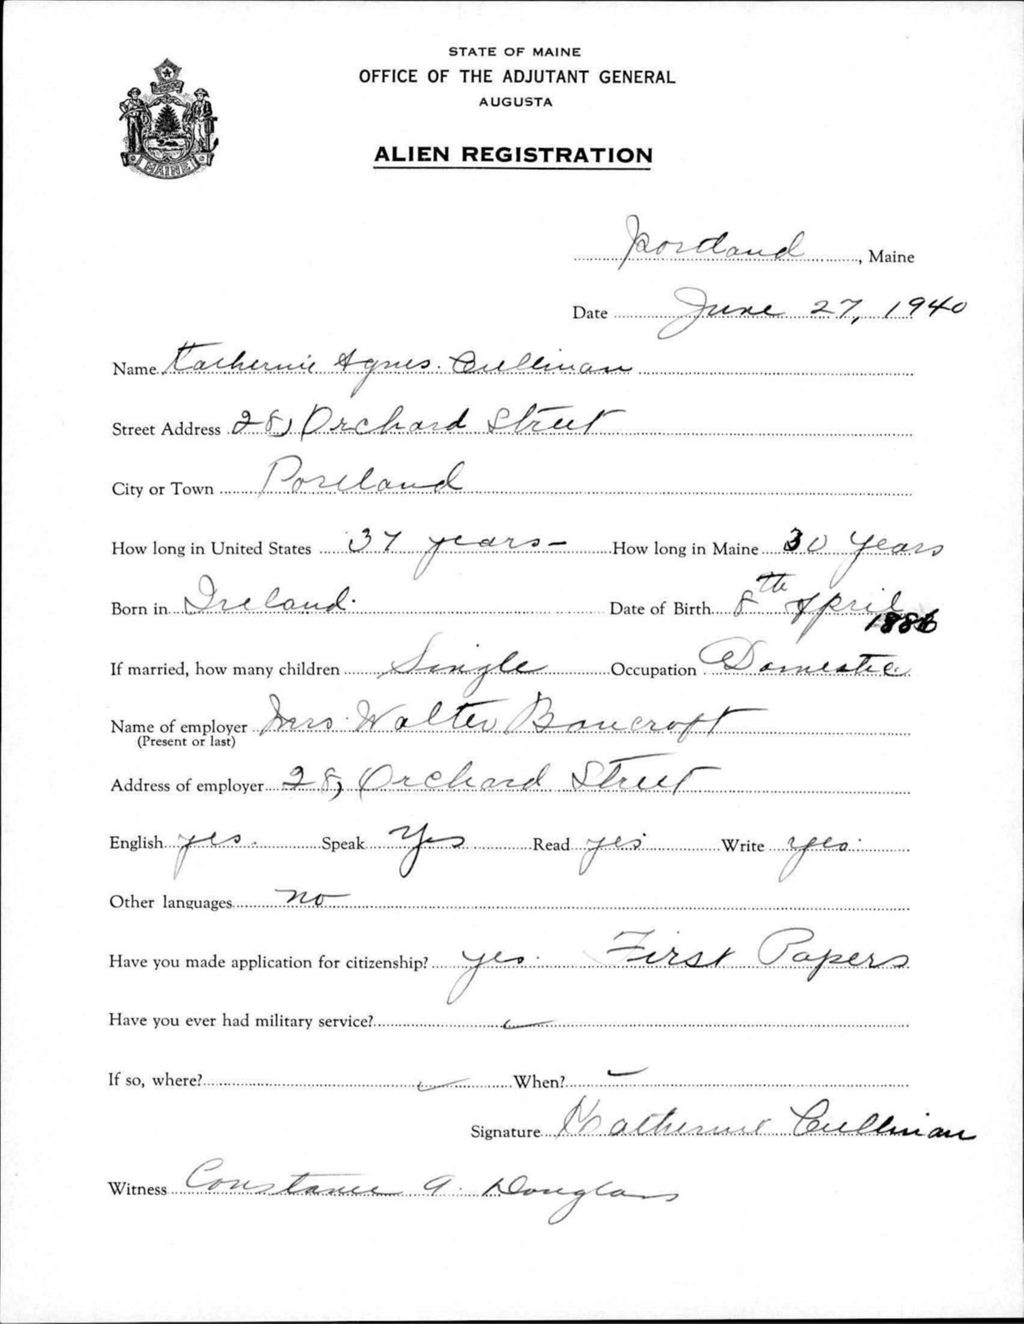 STATE OF MAINE
OFFICE OF THE ADJUTANT GENERAL
AUGUSTA
ALIEN REGISTRATION
MAINE
Portland, Maine
Date June 27, 1940
Name Katherine Agnes Cullinan
Street Address 28, Orchard Street
City or Town Portland
How long in United States 37 years - How long in Maine 30 Years
Born in Ireland. Date of Birth 8th April 1886
If married, how many children Single Occupation Domestic
Name of employer Mrs. Walter Bancroft
(Present or last)
Address of employer 28, Orchard Street
English yes. Speak Yes Read yes Write yes.
Other languages no
Have you made application for citizenship? yes. First Papers
Have you ever had military service?
If so, where? When?
Signature Katherine Cullinan
Witness Constance A. Douglass